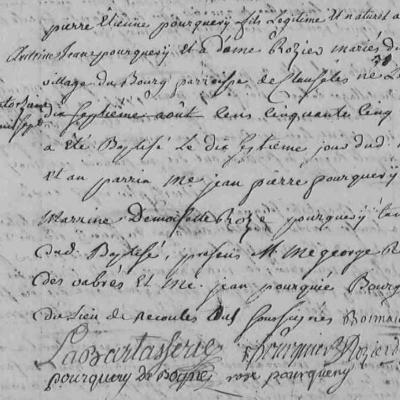 pierre Etienne pourquery fils Legitime Et naturel a
Antoine Jean pourquery et a dame Rozier mariés du
village du Bourg parroisse de
dix septième août lan cinquante cinq
a eté Baptisé Le dix septième jour dud
et au parrin Me jean pierre pourquery
Marrine Demoiselle Roze pourquery tan
dud. Baptisé, presens Mr Me george R
des vabrés et Me. jean pourquié Bourg
du Lieu de recoules soussignés Romain
Labartasserie pourquery Rozier
pourquery de rose pourquery